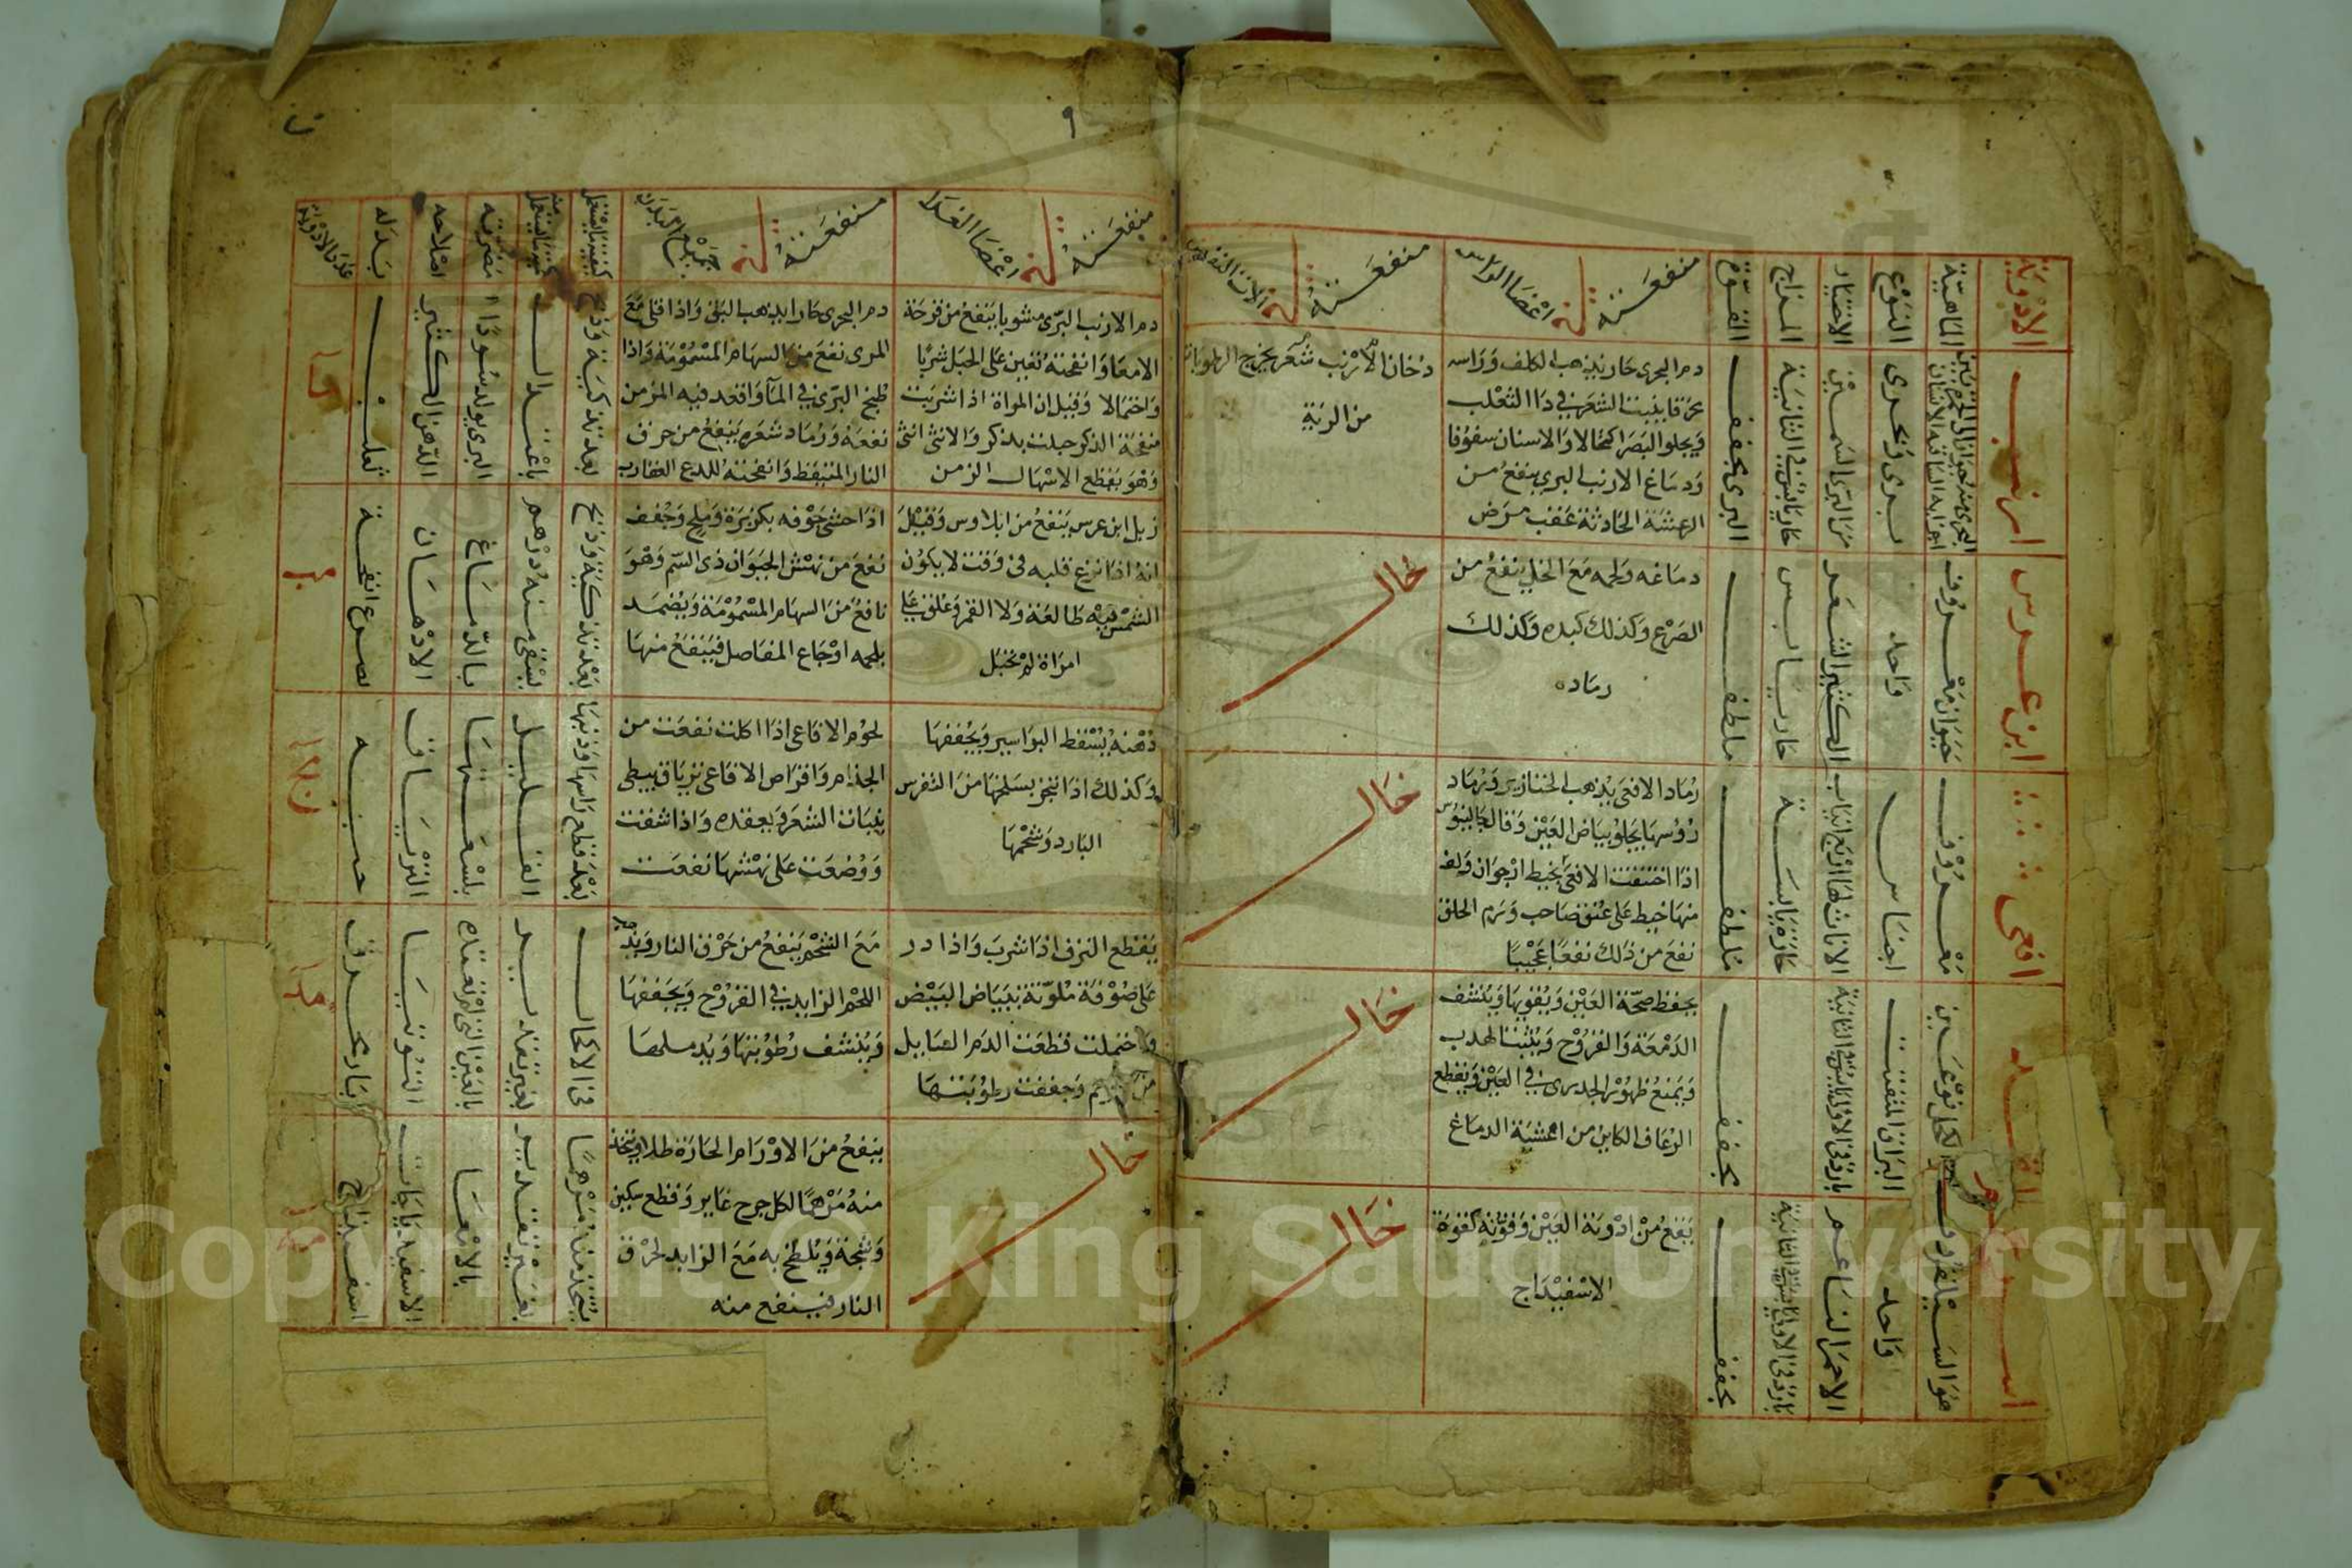 الادوية
الماهية
النوع
الاختيار
المزاج
القوة
منفعته في اعضا الراس
منفعته في الات التنفس
ارنب
بري وبحري
من البري السمين
حار يابس في الثانية
البري مجفف
دم البحري حار يذهب الكلف وراسه
محرقا ينبت الشعر في دا الثعلب
ويجلو البصر اكتحالا والاسنان سفوفا
ودماغ الارنب البري ينفع من
الرعشة الحادثة عقب مرض
دخان الارنب شعر يخرج الرطوبات
من الرية
ابن عرس
حيوان معروف
واحد
الكثير الشعر
حار يابس
ملطف
دماغه ولحمه مع الخل ينفع من
الصرع وكذلك كبده وكذلك
رماده
خال
افعى
معروف
اجناس
الاناث لها اربع انياب
حارة يابسة
ملطف
رماد الافعى يذهب الخنازير ورماد
رؤسها يجلو بياض العين وقال جالينوس
اذا اختنقت الافعى بخيط ارجوان ولف
منها خيط على عنق صاحب ورم الحلق
نفع من ذلك نفعا عجيبا
خال
اثمد
الكحل نوعين
البراق المفتت
بارد في الاولى يابس في الثانية
مجفف
يحفظ صحة العين ويقويها وينشف
الدمعة والقروح وينبت الهدب
ويمنع ظهور الجدري في العين ويقطع
الرعاف الكاين من اغشية الدماغ
خال
هو السيلقون
واحد
الاحمر الناعم
بارد في الاولى يابس في الثانية
مجفف
ينفع من ادوية العين وقوته كقوة
الاسفيداج
خال
٩
منفعته في اعضا الغذا
منفعته في جميع البدن
كيفية ما يستعمل
كمية ما يستعمل منه
مضرته
اصلاحه
بدله
عدد الادوية
دم الارنب البري مشويا ينفع من قرحة
الامعا وانفحته تعين على الحبل شربا
واحتمالا وقيل ان المراة اذا شربت
منفحة الذكر حبلت بذكر والانثى انثى
وهو يقطع الاسهال الزمن
دم البحري حارا يذهب البهق واذا قلي مع
المري نفع من السهام المسمومة واذا
طبخ البري في المآ واقعد فيه المزمن
نفعه ورماد شعره ينفع من حرق
النار المنبفط وانفحته للدع العقارب
بعد تذكية وذبح
باعتدال
البري يولد سودا
الدهن الكثير
ثعلب
زبل ابن عرس ينفع من ايلاوس وقيل
انه اذا نزع قلبه في وقت لا يكون
الشمس فيه طالعة ولا القمر وعلق على
امراة لم تحبل
اذا حشي جوفه بكزبرة وملح وجفف
نفع من نهش الحيوان ذي السم وهو
نافع من السهام المسمومة ويضمد
بلحمه اوجاع المفاصل فينفع منها
بعد تذكية وذبح
يستقى منه درهم
بالدماغ
الادهان
مب
دهنه يسقط البواسير ويجففها
وكذلك اذا تبخر بسلخها من النقرس
البارد وشحمها
لحوم الافاعي اذا اكلت نفعت من
الجذام واقراص الافاعي ترياق يبطي
بنبات الشعر ويعقده واذا شقت
ووضعت على نهشها نفعت
بعد قطع راسها وذنبها
القليل
بلسعتها
الترياق
حيه
يقطع النزف اذا شرب واذا در
على صوفة ملوثة ببياض البيض
واحتملت قطعت الدم السايل
وجففت رطوبتها
مع الشحم ينفع من حرق النار ويدمل
اللحم الزايد في القروح ويجففها
وينشف رطوبتها ويدملها
في الاكحال
بغير تقدير
بالعين التي لم تعتده
التوتيا
ابار محرق
مد
خال
ينفع من الاورام الحارة طلا ويتخذ
منه مرهما لكل جرح غاير وقطع سكين
وشجة ويلطخ به مع الزايد لحرق
النار فينفع منه
يتخذ منه مرهما
بغير تقدير
بالامعا
اسفيداج
Copyright © King Saud University